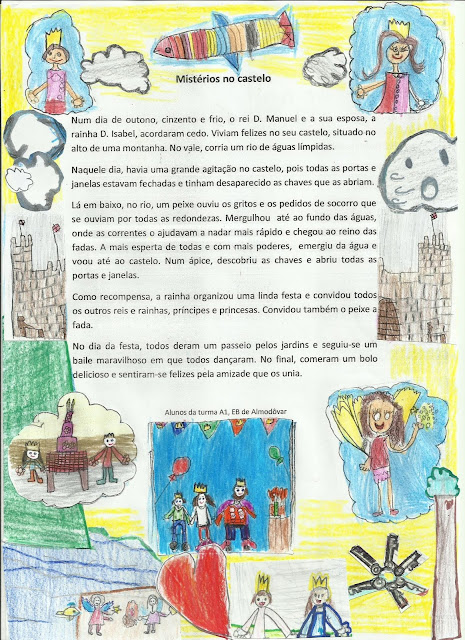 Mistérios no castelo
Num dia de outono, cinzento e frio, o rei D. Manuel e a sua esposa, a
rainha D. Isabel, acordaram cedo. Viviam felizes no seu castelo, situado no
alto de uma montanha. No vale, corria um rio de águas límpidas.
Naquele dia, havia uma grande agitação no castelo, pois todas as portas e
janelas estavam fechadas e tinham desaparecido as chaves que as abriam.
Lá em baixo, no rio, um peixe ouviu os gritos e os pedidos de socorro que
se ouviam por todas as redondezas. Mergulhou até ao fundo das águas,
onde as correntes o ajudavam a nadar mais rápido e chegou ao reino das
fadas. A mais esperta de todas e com mais poderes, emergiu da água e
voou até ao castelo. Num ápice, descobriu as chaves e abriu todas as
portas e janelas.
Como recompensa, a rainha organizou uma linda festa e convidou todos
os outros reis e rainhas, príncipes e princesas. Convidou também o peixe a
fada.
No dia da festa, todos deram um passeio pelos jardins e seguiu-se um
baile maravilhoso em que todos dançaram. No final, comeram um bolo
delicioso e sentiram-se felizes pela amizade que os unia.
Alunos da turma A1, EB de Almodôvar